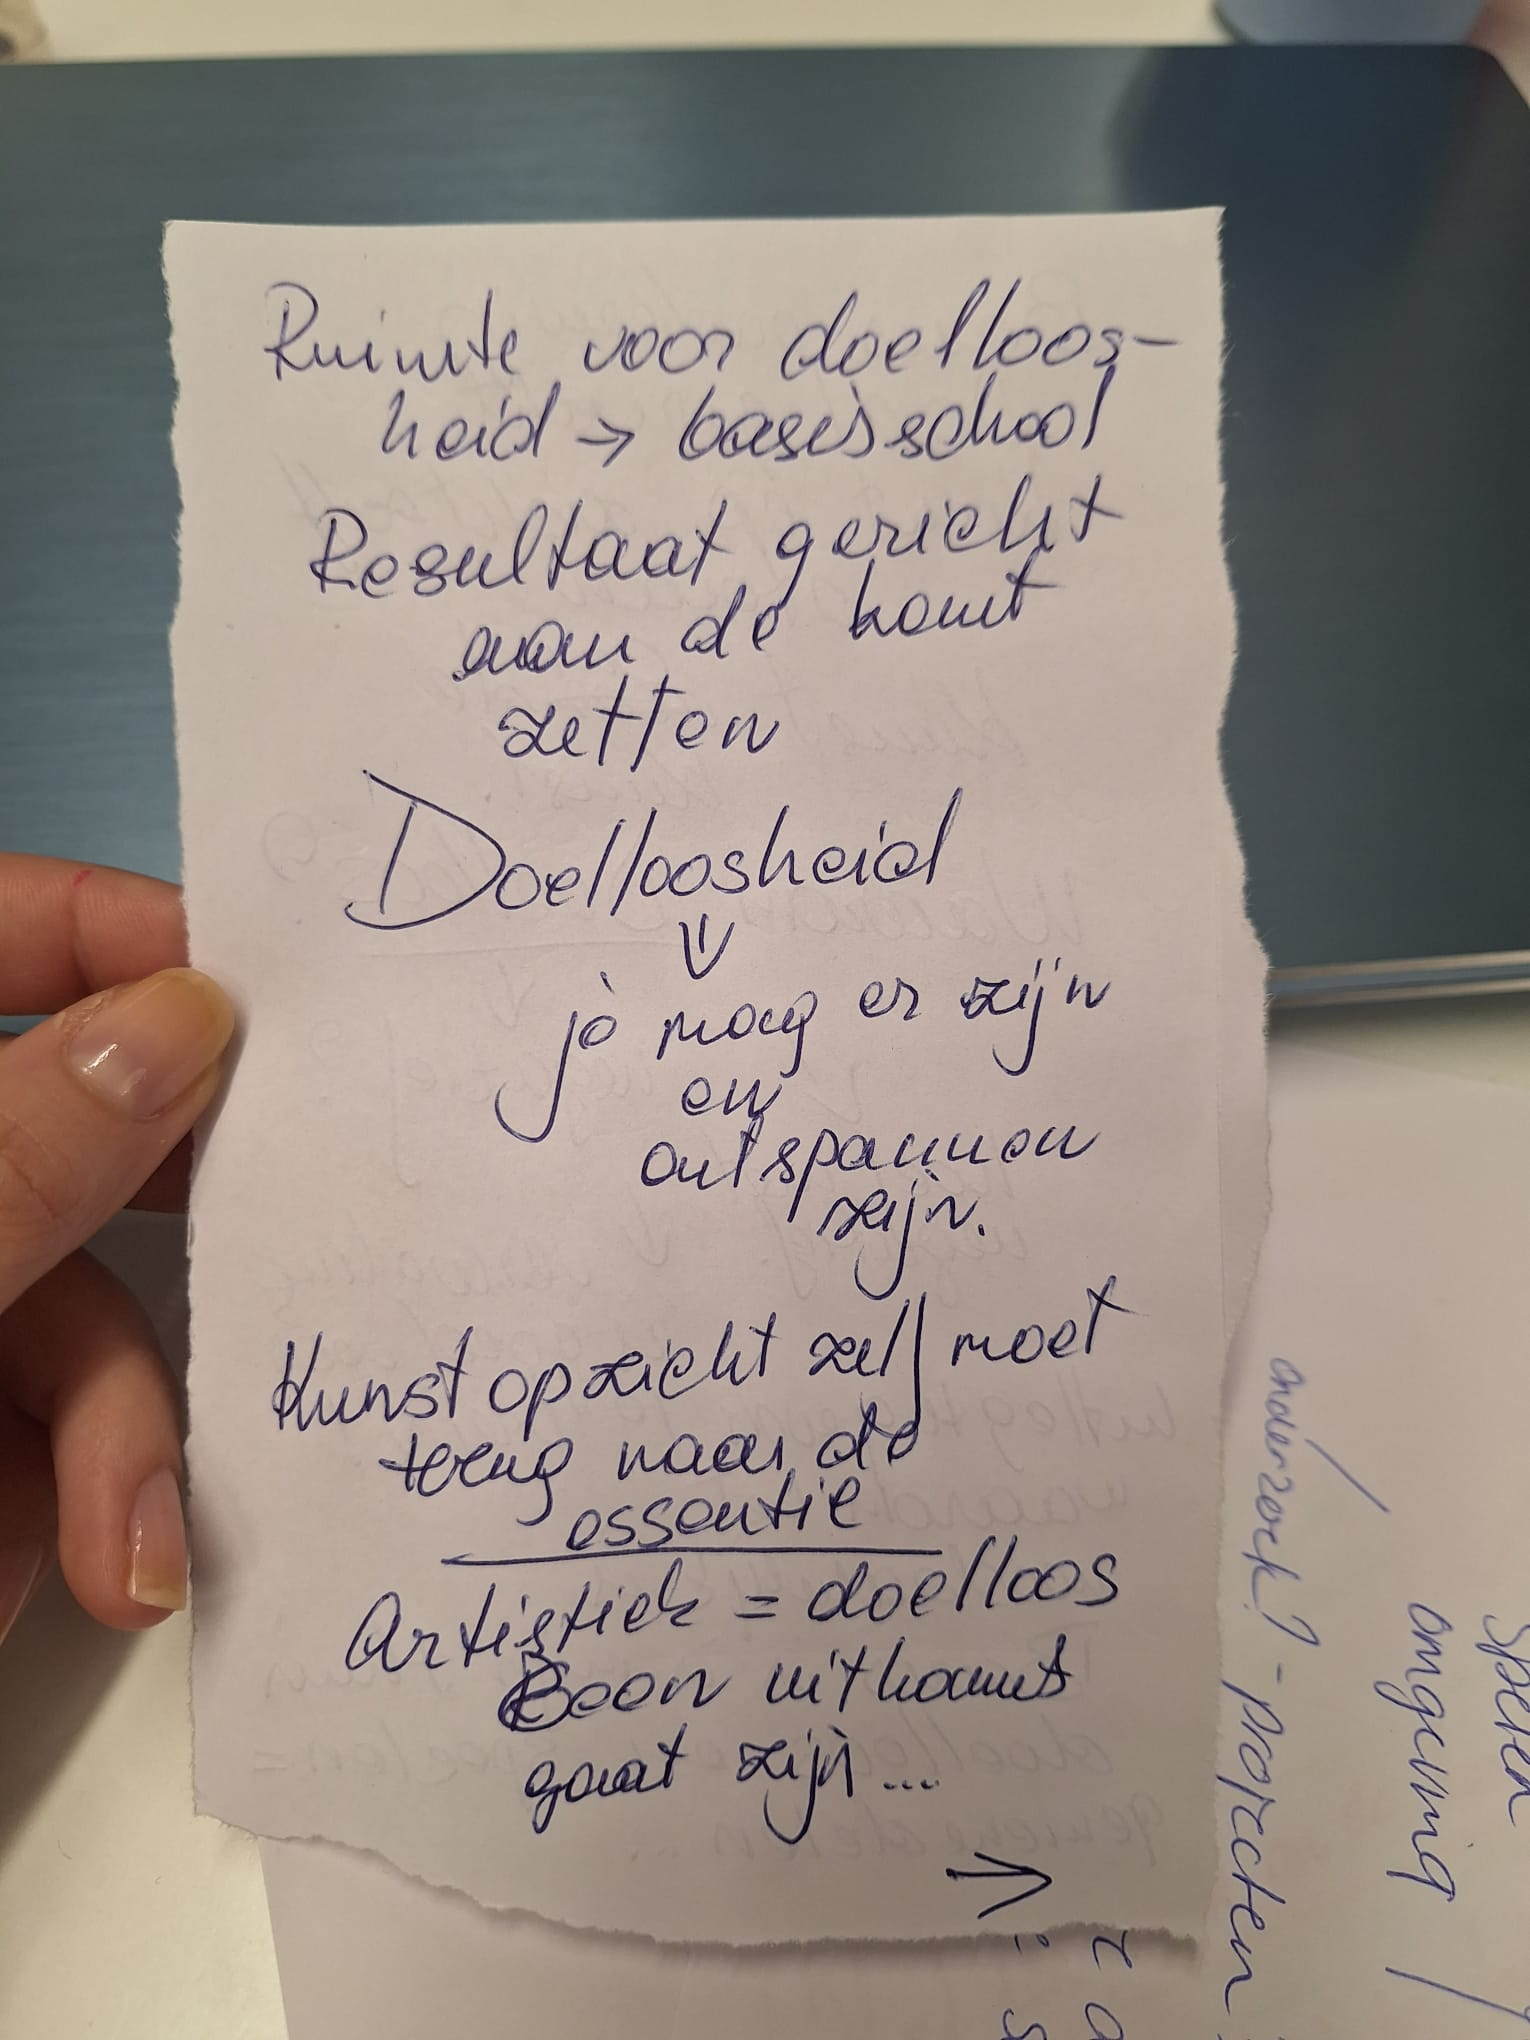 Ruimte voor doelloos-
heid → basisschool
Resultaat gericht
aan de kant
zetten
Doelloosheid
je mag er zijn
en
ontspannen
zijn.
Kunst opzicht zelf moet
terug naar de
essentie
Artistiek = doelloos
Geen uitkomst
gaat zijn...
onderzoek? - projecten
omgeving
spelen